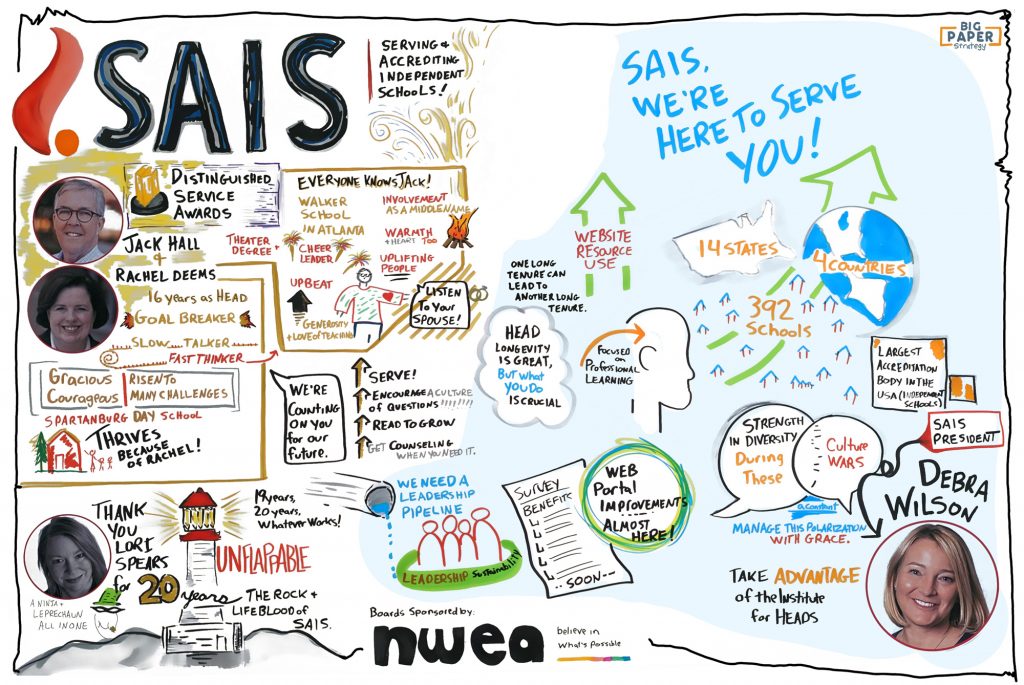 SAIS
SERVING &
ACCREDITING
INDEPENDENT
SCHOOLS!
BIG
PAPER
Strategy
SAIS,
WE'RE
HERE TO SERVE
YOU!
DISTINGUISHED
SERVICE
AWARDS
JACK HALL
&
RACHEL DEEMS
EVERYONE KNOWS JACK!
WALKER
SCHOOL
IN ATLANTA
INVOLVEMENT
AS A MIDDLE NAME
WARMTH
+ HEART TOO
THEATER
DEGREE +
CHEER
LEADER
UPLIFTING
PEOPLE
UPBEAT
GENEROSITY
+ LOVE of TEACHING
LISTEN
To Your
SPOUSE!
16 years as HEAD
GOAL BREAKER
SLOW TALKER
FAST THINKER
Gracious
Courageous
RISEN TO
MANY CHALLENGES
SPARTANBURG DAY SCHOOL
THRIVES
BECAUSE
OF RACHEL!
WE'RE
COUNTING
ON YOU
for our
future.
SERVE!
ENCOURAGE A CULTURE
OF QUESTIONS!!!!!!!!
READ TO GROW
GET COUNSELING
WHEN YOU NEED IT.
THANK
YOU
LORI
SPEARS
for
20
years
A NINJA +
LEPRECHAUN
ALL IN ONE
19 years,
20 years,
WHATEVER WORKS!
UNFLAPPABLE
THE ROCK &
LIFEBLOOD OF
SAIS.
WE NEED A
LEADERSHIP
PIPELINE
LEADERSHIP Sustainability
Boards Sponsored by:
nwea
believe in
What's Possible
ONE LONG
TENURE CAN
LEAD TO
ANOTHER LONG
TENURE.
WEBSITE
RESOURCE
USE
HEAD
LONGEVITY
IS GREAT,
BUT What
YOU DO
IS CRUCIAL
FOCUSED
ON
Professional
LEARNING
SURVEY
BENEFITS
SOON
WEB
Portal
IMPROVEMENTS
ALMOST
HERE!
14 STATES
4 COUNTRIES
392
Schools
LARGEST
ACCREDITATION
BODY IN THE
USA (INDEPENDENT
SCHOOLS)
STRENGTH
IN DIVERSITY
During
These
Culture
WARS
a constant
MANAGE THIS POLARIZATION
WITH GRACE.
SAIS
PRESIDENT
DEBRA
WILSON
TAKE ADVANTAGE
of the Institute
for HEADS